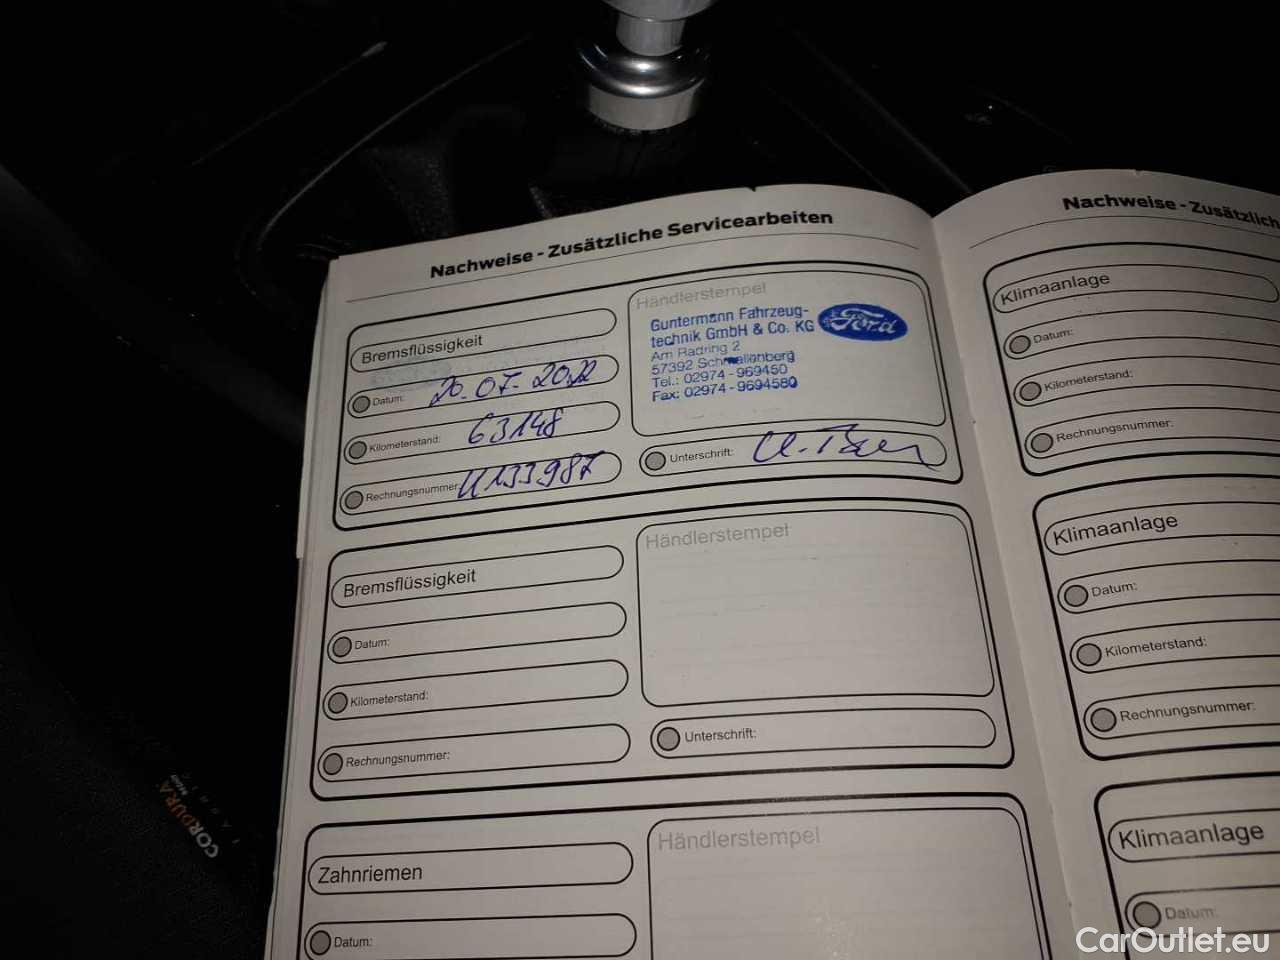 Nachweise - Zusätzliche Servicearbeiten
Bremsflüssigkeit
Datum: 20.07.2022
Kilometerstand: 63148
Rechnungsnummer: U133987
Händlerstempel
Guntermann Fahrzeug-
technik GmbH & Co. KG
Am Radring 2
57392 Schmallenberg
Tel.: 02974 - 969450
Fax: 02974 - 9694580
Ford
Unterschrift:
Bremsflüssigkeit
Datum:
Kilometerstand:
Rechnungsnummer:
Händlerstempel
Unterschrift:
Zahnriemen
Datum:
Händlerstempel
Nachweise - Zusätzlich
Klimaanlage
Datum:
Kilometerstand:
Rechnungsnummer:
Klimaanlage
Datum:
Kilometerstand:
Rechnungsnummer:
Klimaanlage
Datum:
CORDURA
CarOutlet.eu